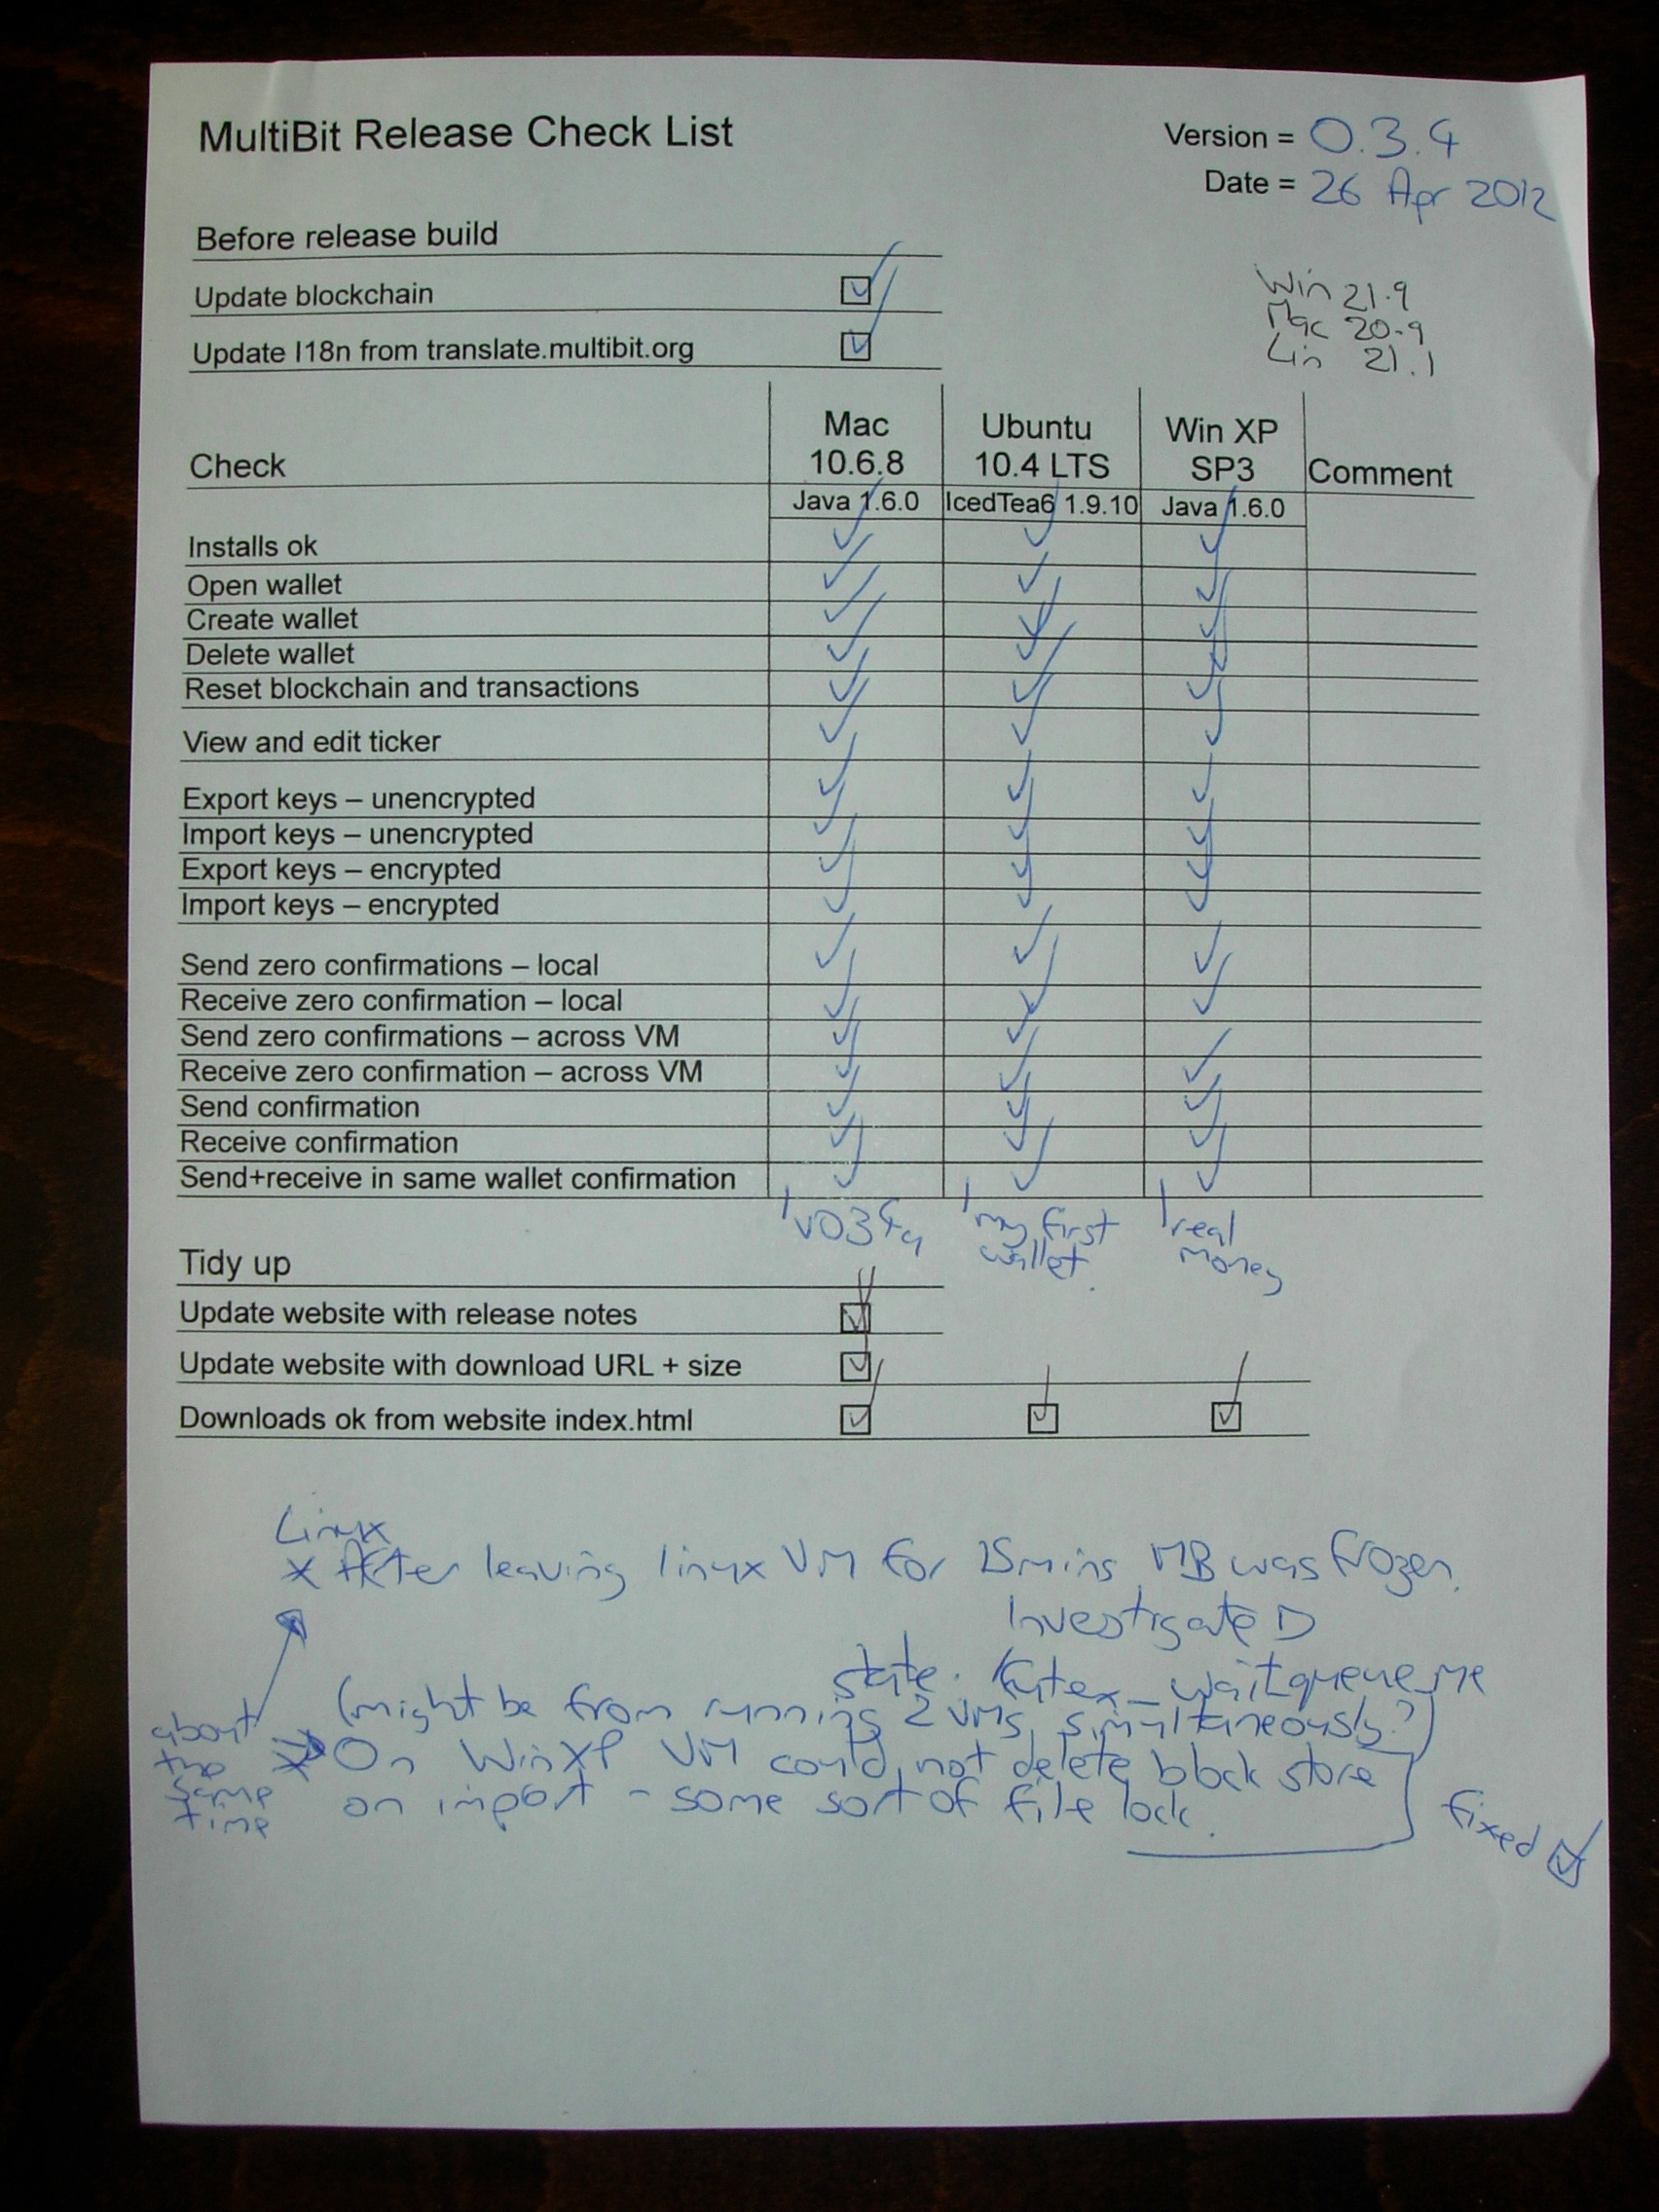 MultiBit Release Check List
Version = 0.3.4
Date = 26 Apr 2012
Before release build
Update blockchain
Update I18n from translate.multibit.org
Win 21.9
Mac 20.9
Lin 21.1
Check Mac 10.6.8 Ubuntu 10.4 LTS Win XP SP3 Comment
Java 1.6.0 IcedTea6 1.9.10 Java 1.6.0
Installs ok
Open wallet
Create wallet
Delete wallet
Reset blockchain and transactions
View and edit ticker
Export keys – unencrypted
Import keys – unencrypted
Export keys – encrypted
Import keys – encrypted
Send zero confirmations – local
Receive zero confirmation – local
Send zero confirmations – across VM
Receive zero confirmation – across VM
Send confirmation
Receive confirmation
Send+receive in same wallet confirmation
my first wallet.
real money
Tidy up
Update website with release notes
Update website with download URL + size
Downloads ok from website index.html
Linux
After leaving linux VM for 15mins MB was frozen.
Investigate D
state. futex_wait queue me
(might be from running 2 VMs simultaneously?)
about the same time
On WinXP VM could not delete block store
on import - some sort of file lock.
fixed